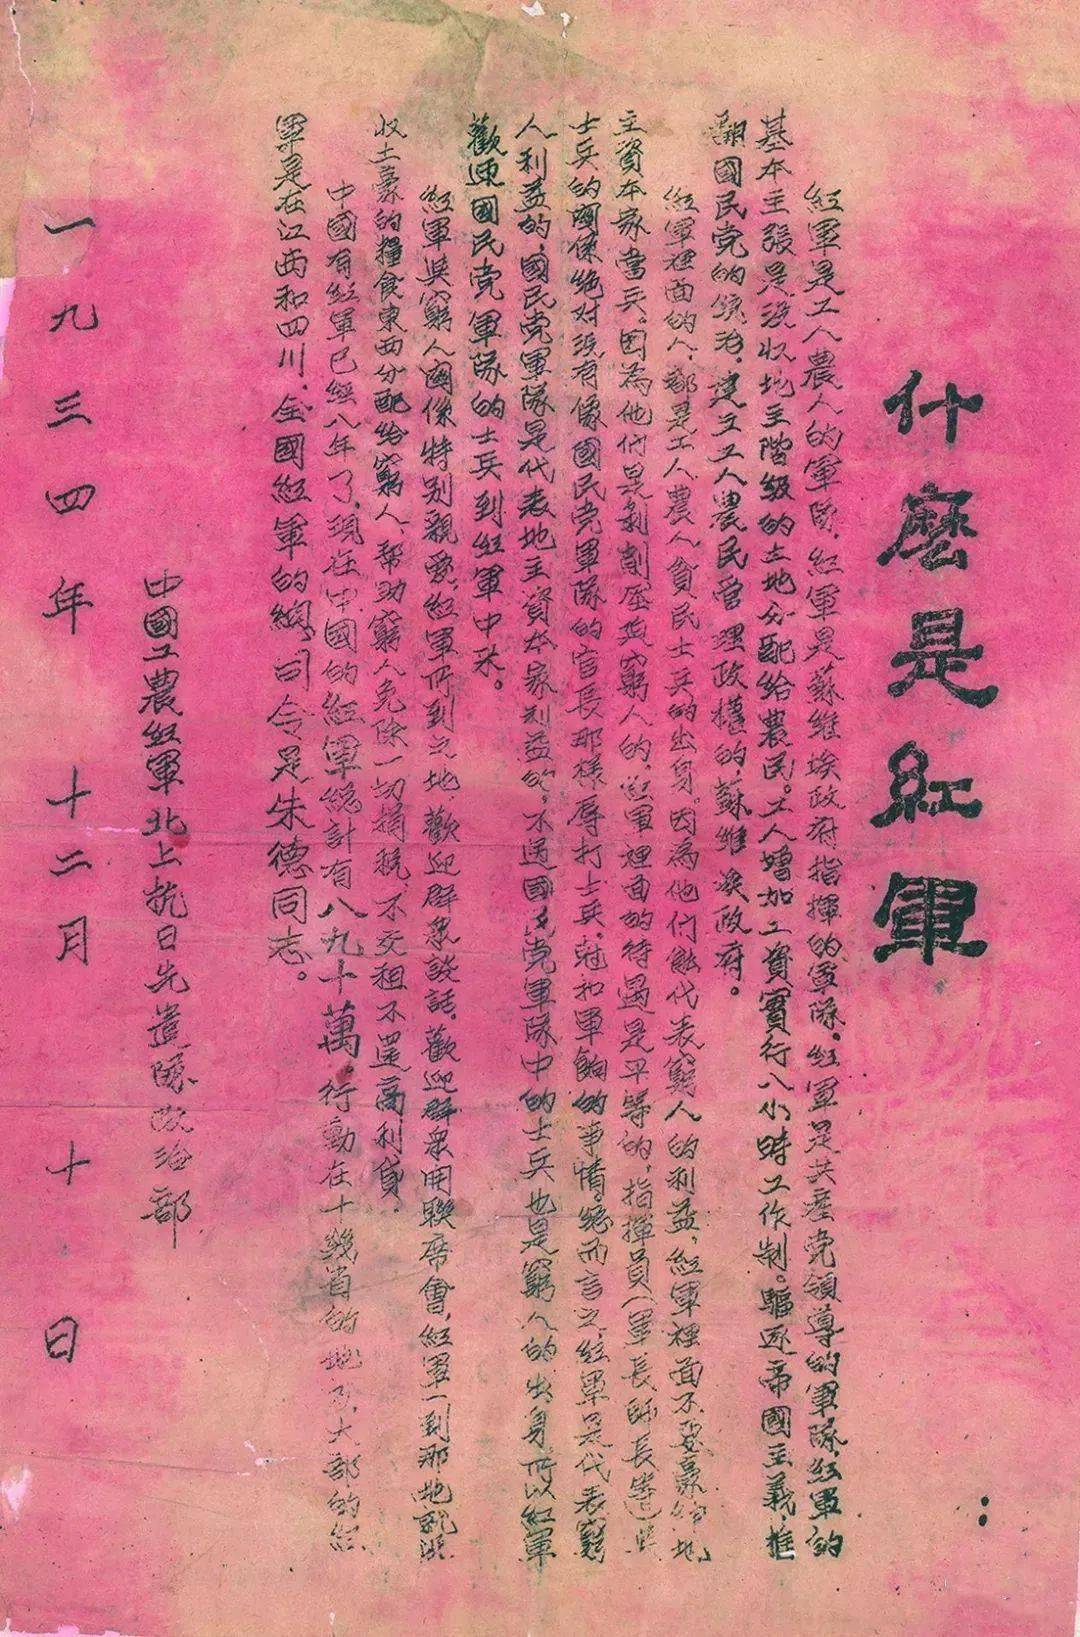 什麽是紅軍
紅軍是工人農人的軍隊，紅軍是蘇維埃政府指揮的軍隊，紅軍是共產党領導的軍隊，紅軍的
基本主張是没收地主階級的土地分配給農民。工人增加工資實行八小時工作制。驅逐帝國主義，推
翻國民党的统治。建立工人農民管理政權的，蘇維埃政府。
紅軍裡面的人，都是工人農人貧民士兵的出身。因為他们能代表窮人的利益，紅軍裡面不要豪紳地
主資本家當兵。因為他们是剝削压迫窮人的，紅軍裡面的待遇是平等的，指揮員（軍長師長等）與
士兵的関係绝对没有像國民党軍隊的官長那樣辱打士兵，尅扣軍餉的事情。總而言之，紅軍是代表窮
人利益的，國民党軍隊是代表地主資本家利益的，不過國民党軍隊中的士兵也是窮人的出身所以紅軍
歡迎國民党軍隊的士兵到紅軍中來。
紅軍與窮人関係特别親愛，紅軍所到之地，歡迎群衆談話。歡迎群衆開聯席會，紅軍一到那地就没
收土豪的糧食東西分配给窮人，帮助窮人免除一切捐税，不交租不還高利貸。
中國有紅軍已經八年了，現在中國的紅軍總計有八九十萬。行動在十幾省的地方，大部的紅
軍是在江西和四川，全國紅軍的總司令是朱德同志。
中國工農紅軍北上抗日先遣隊政治部
一九三四年十二月十日